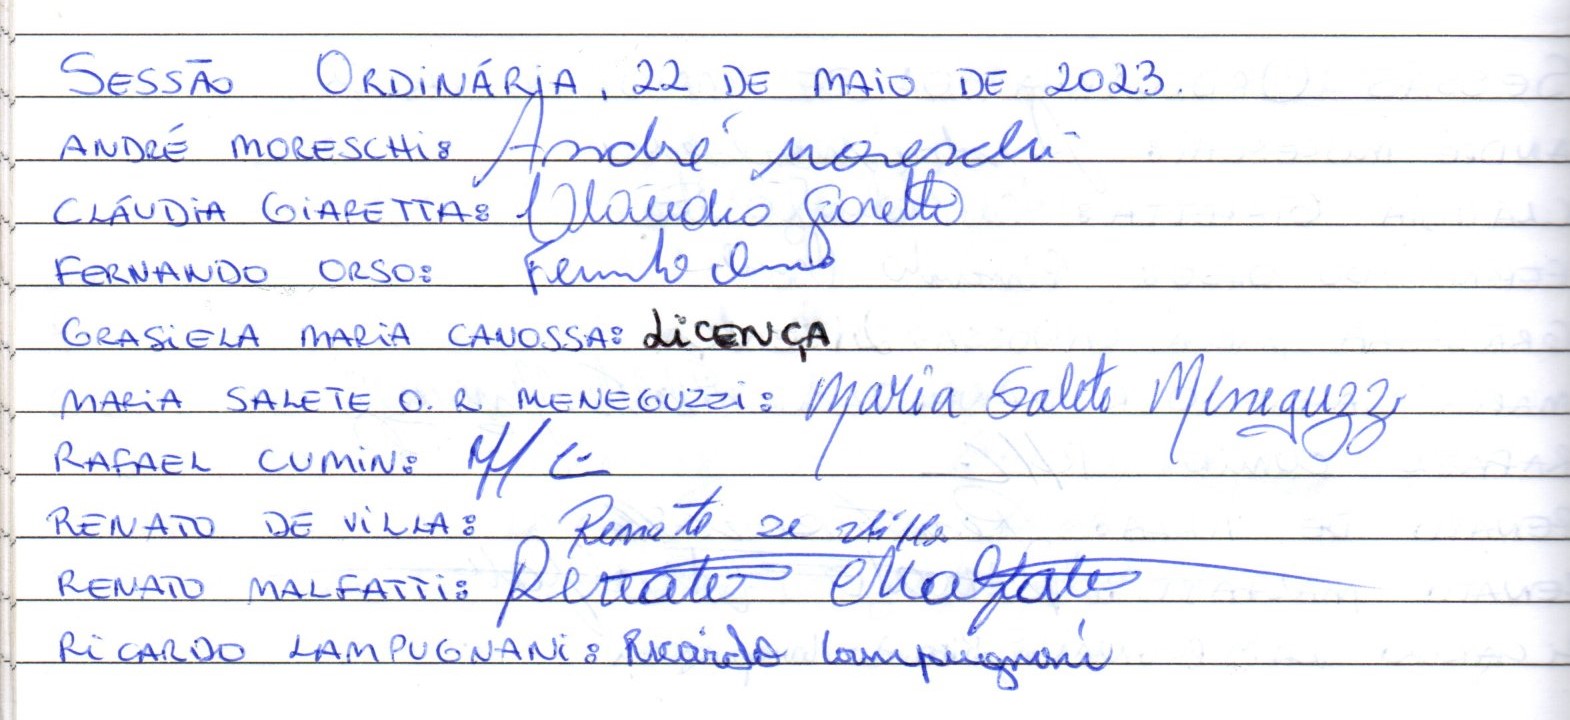 SESSÃO ORDINÁRIA, 22 DE MAIO DE 2023.
ANDRÉ MORESCHI: André Moreschi
CLÁUDIA GIARETTA: Claudia Giaretta
FERNANDO ORSO: Fernando Orso
GRASIELA MARIA CANOSSA: LICENÇA
MARIA SALETE O. R MENEGUZZI: Maria Salete Meneguzzi
RAFAEL CUMIN:
RENATO DE VILLA: Renato de Villa
RENATO MALFATTI: Renato Malfatti
RICARDO LAMPUGNANI: Ricardo Lampugnani